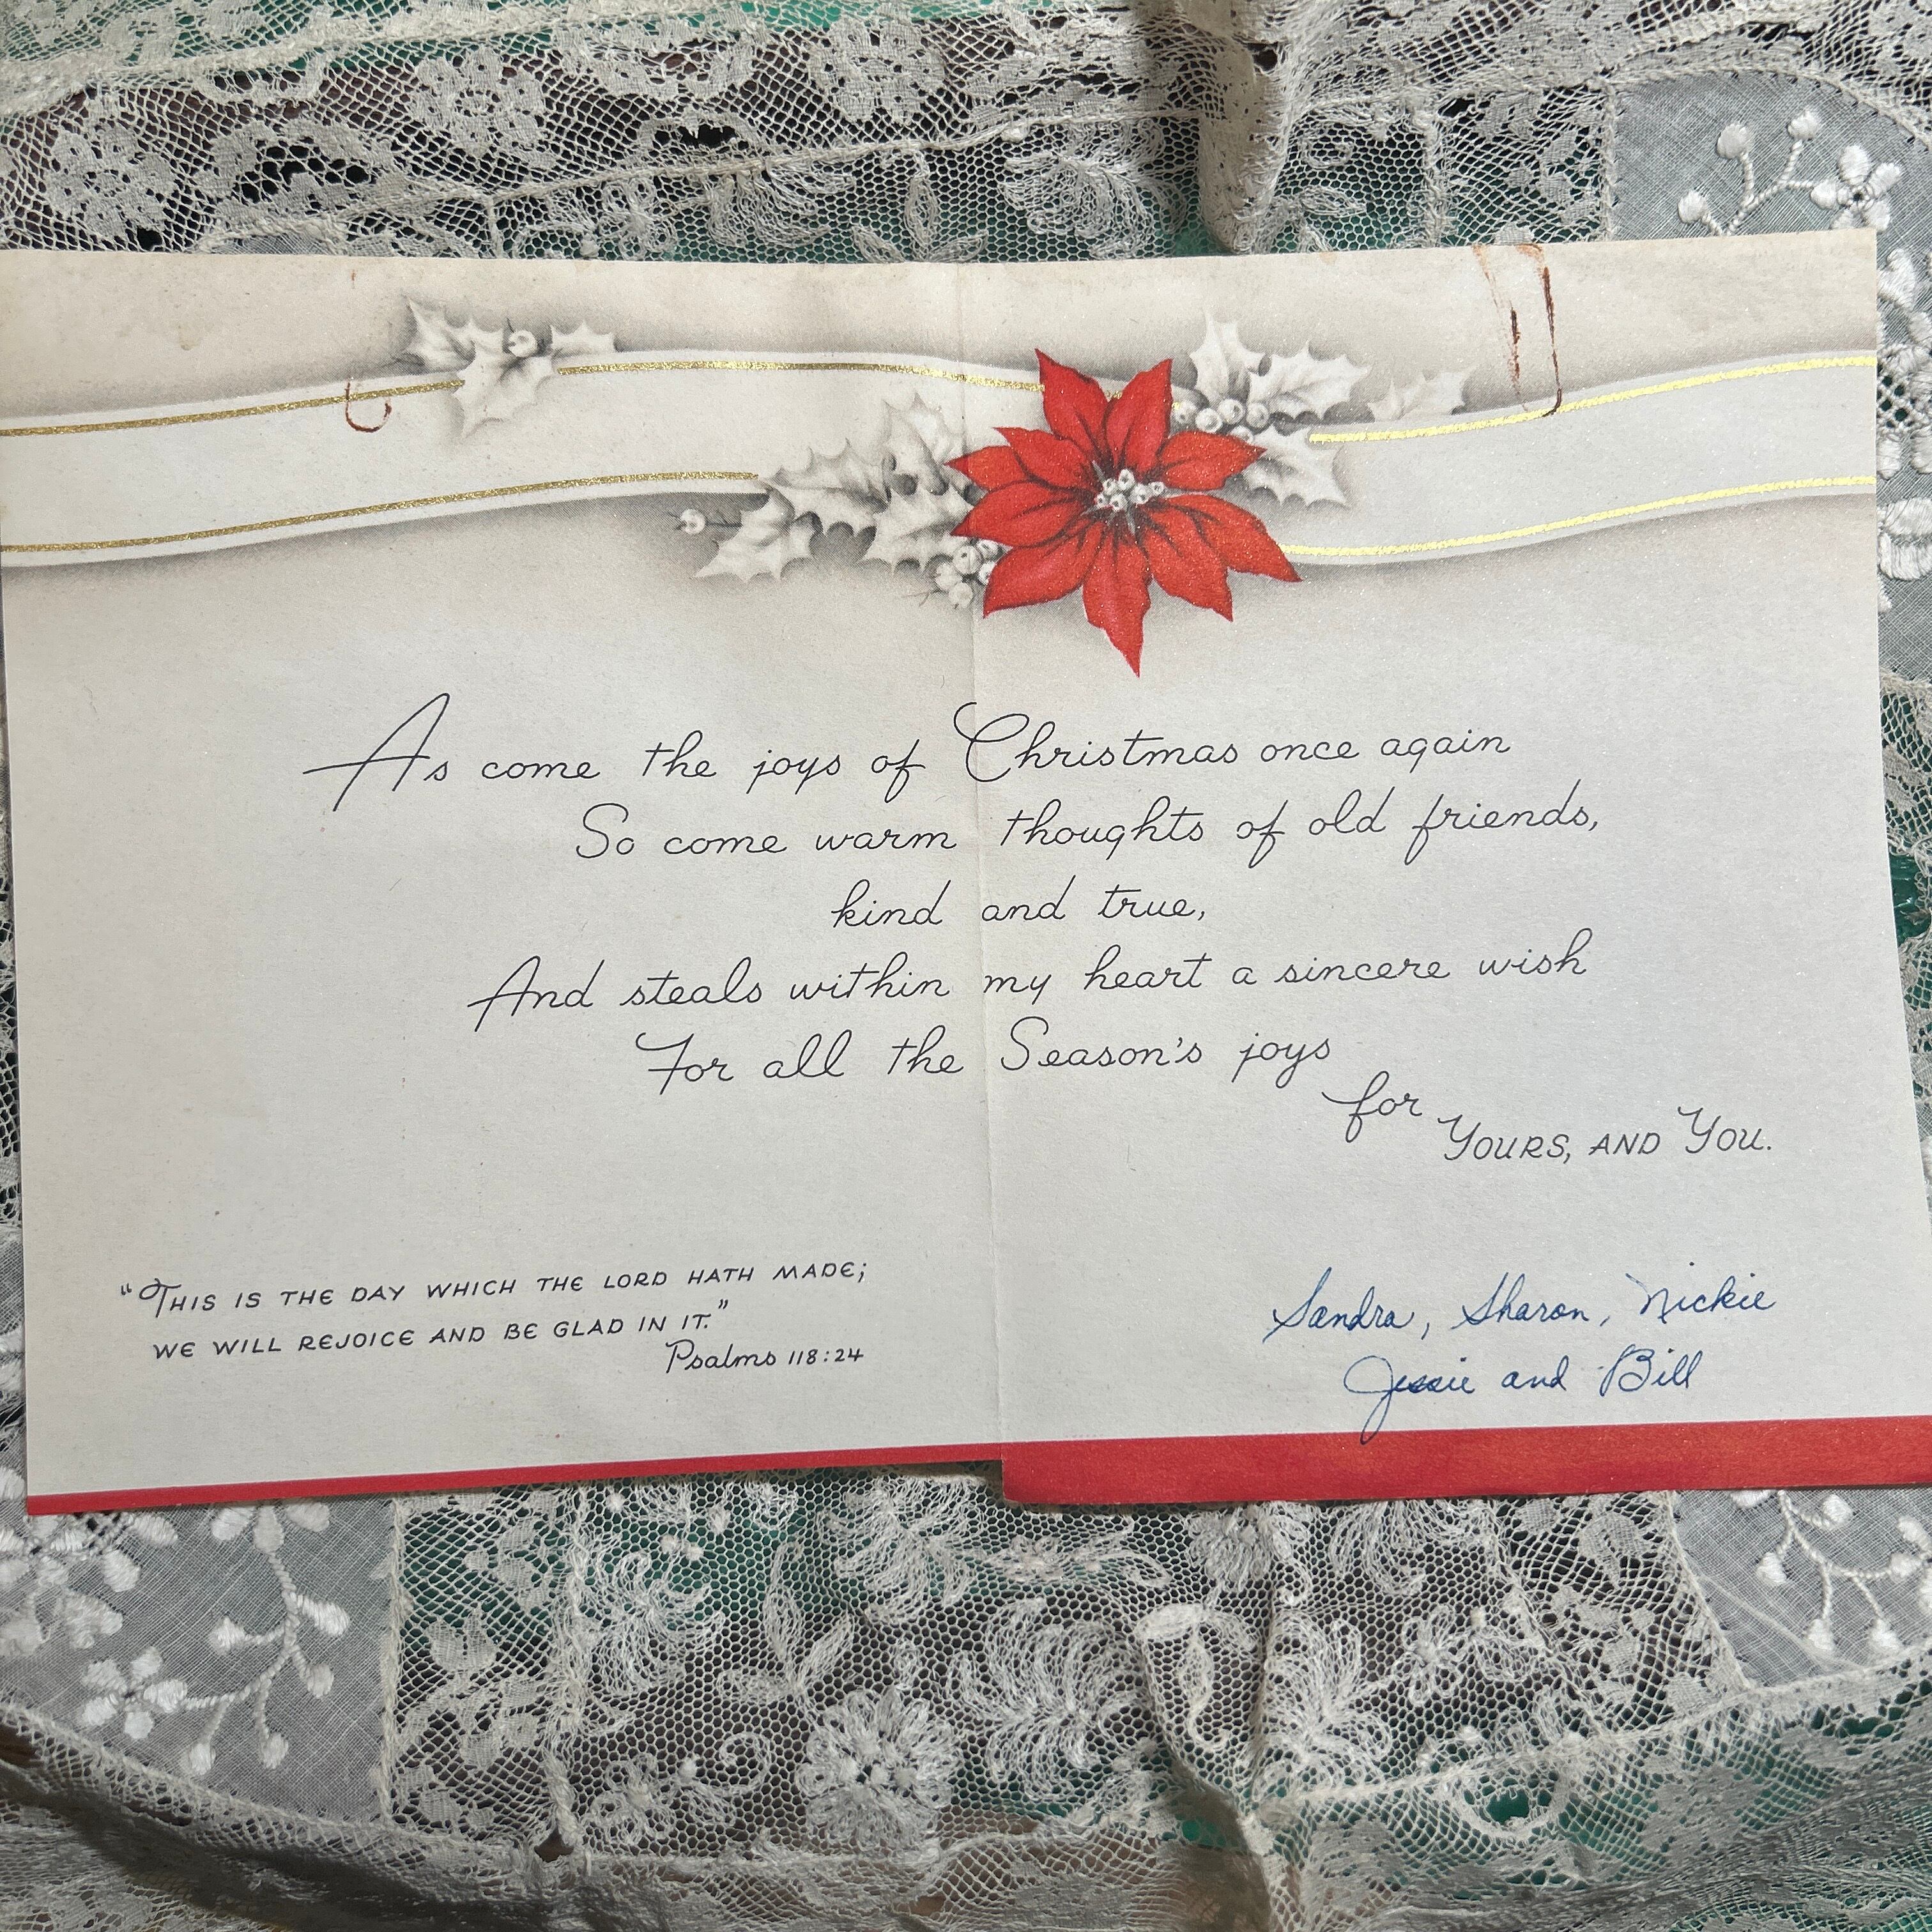 As come the joys of Christmas once again
So come warm thoughts of old friends,
kind and true,
And steals within my heart a sincere wish
For all the Season's joys
for
YOURS, AND YOU.
"THIS IS THE DAY WHICH THE LORD HATH MADE;
WE WILL REJOICE AND BE GLAD IN IT."
Psalms 118:24
Sandra, Sharon, Nickie
Jessie and Bill